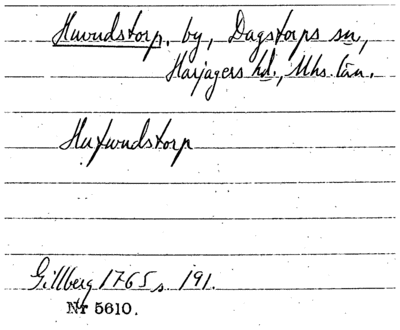 Huvudstorp, by, Dagstorps sn,
Harjagers hd., Mhs. län.
Hufwudstorp
Gillberg 1765 s. 191.
Nr 5610.